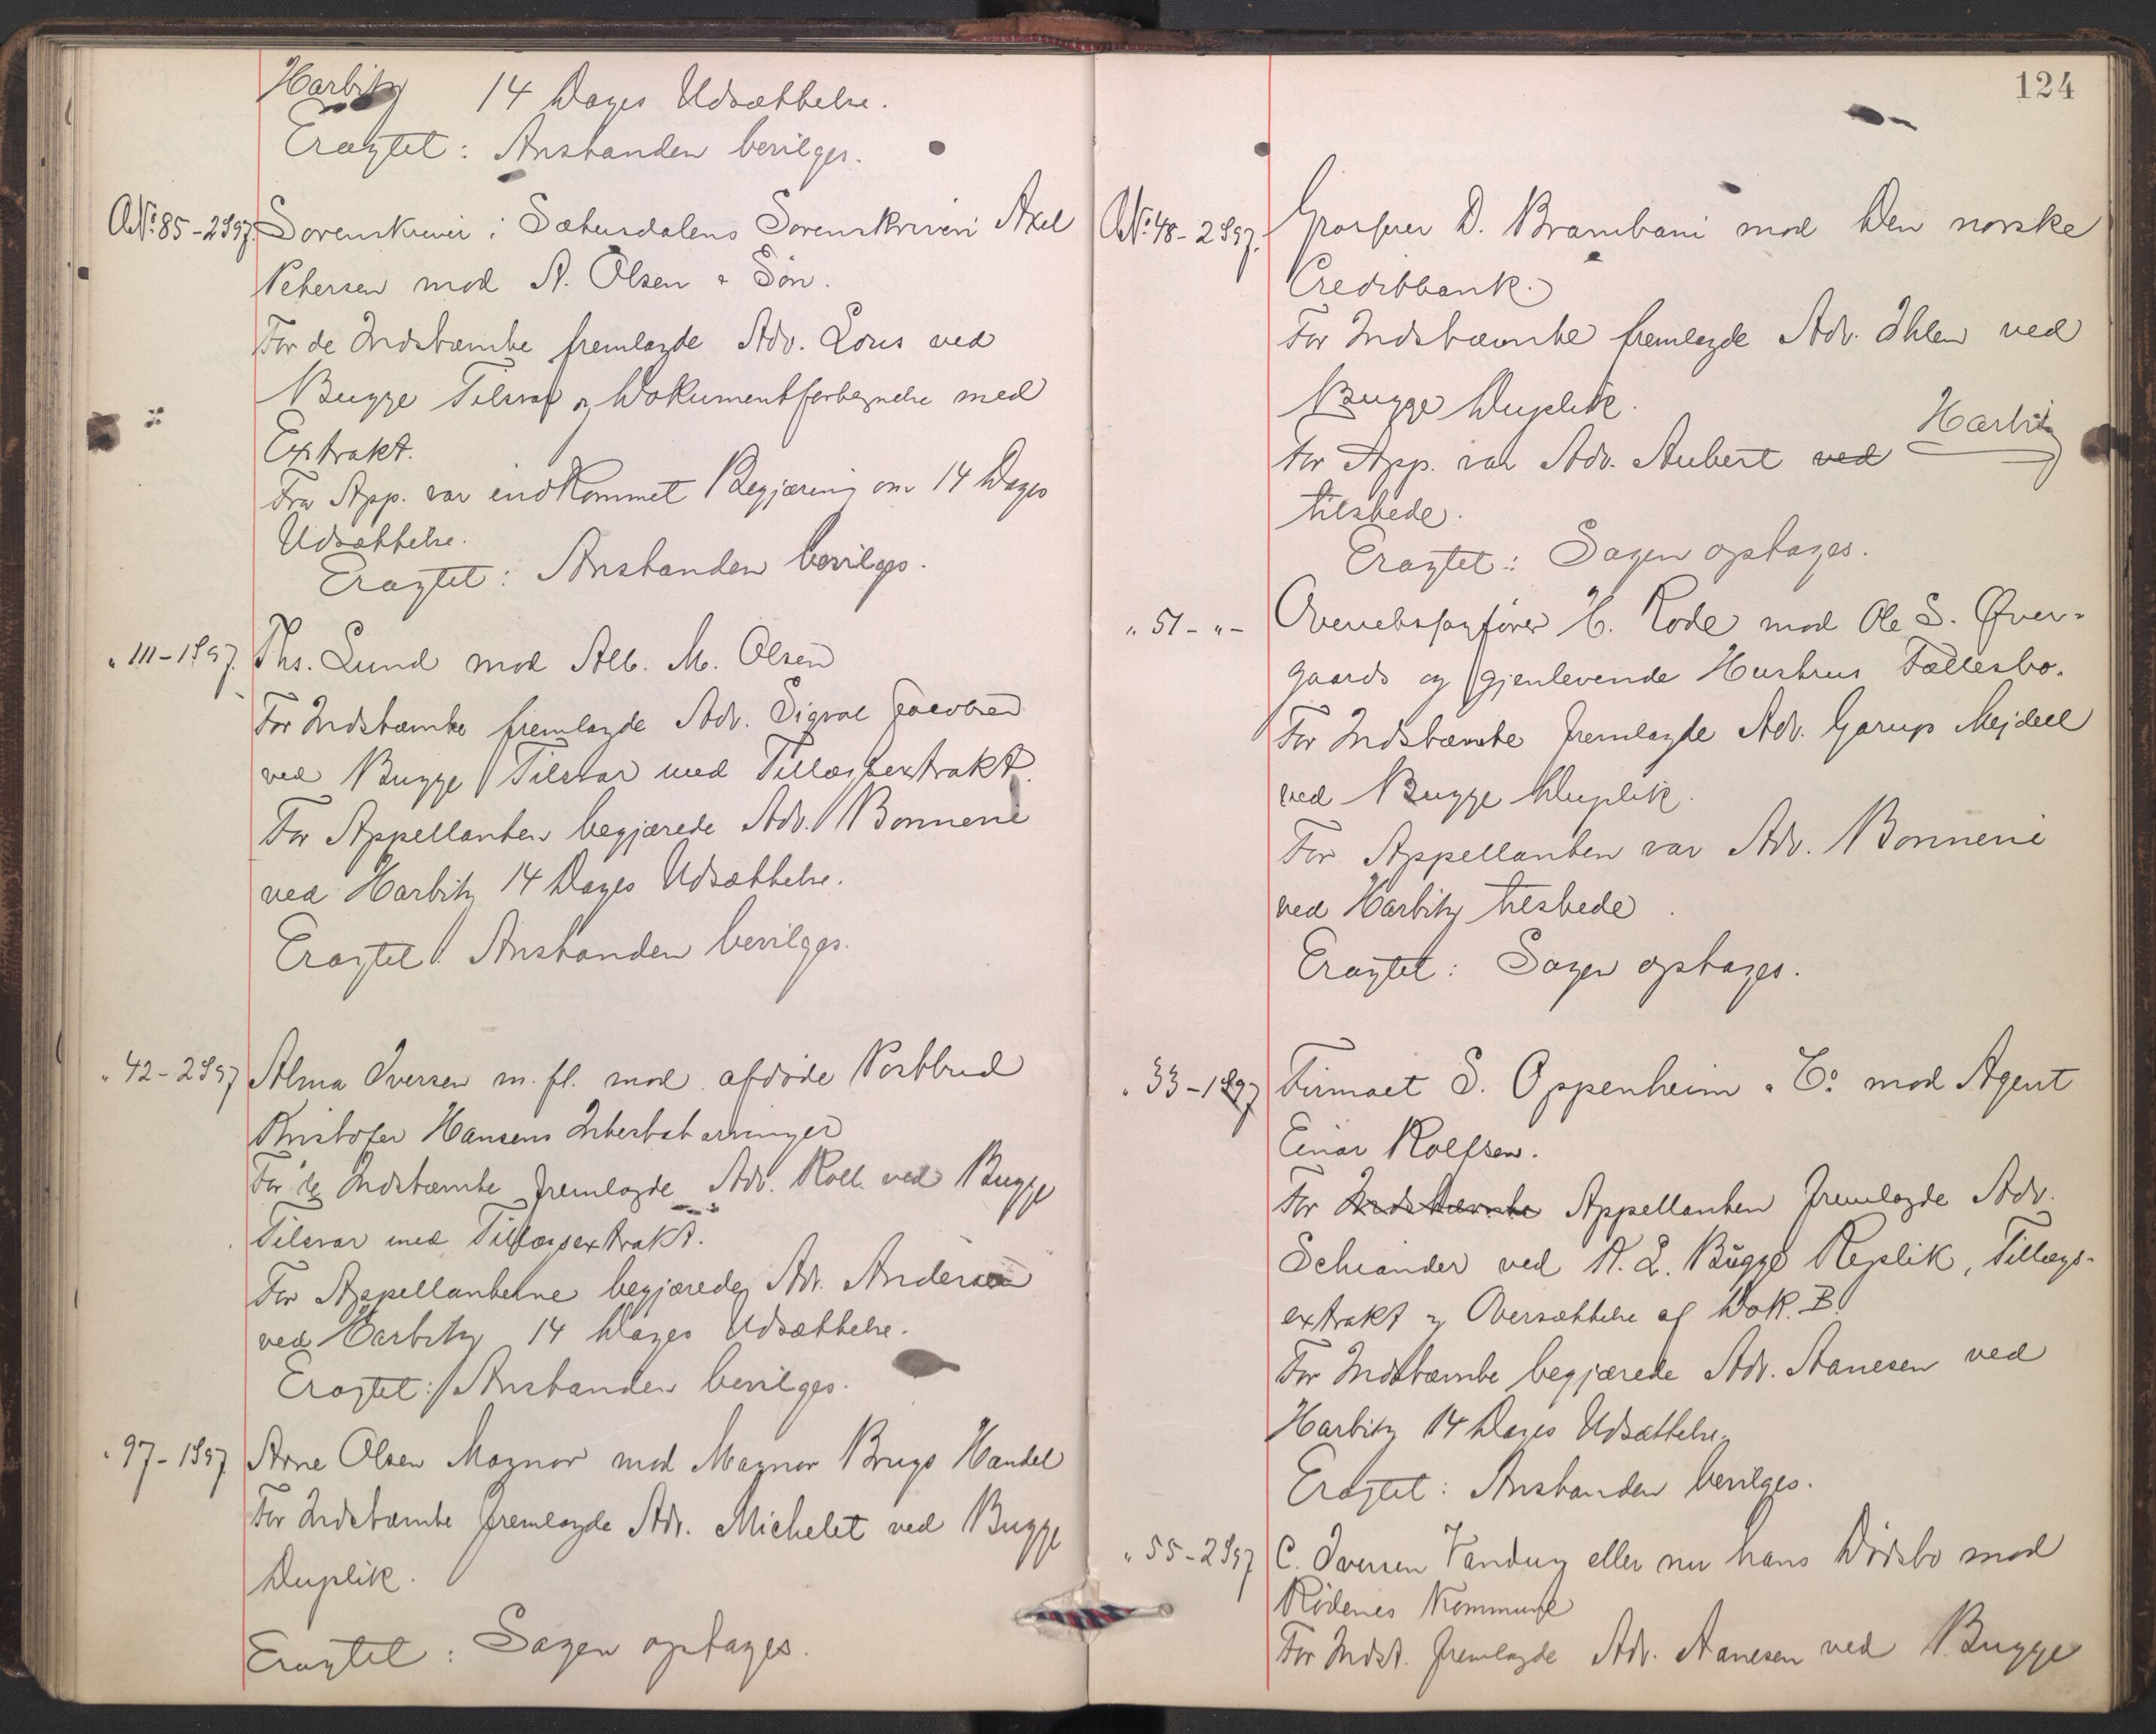 Harbitz 14 Dages Udsættelse.
Eragtet: Anstanden bevilges.
No. 85-2/97. Sorenskriver i Sætersdalens Sorenskriveri Axel
Petersen mod A. Olsen & Søn.
For de Indstævnte fremlagde Adv. Lous ved
Bugge Tilsvar og Dokumentfortegnelse med
Extrakt.
Fra App. var indkommet Begjæring om 14 Dages
Udsættelse.
Eragtet: Anstanden bevilges.
" 111-1/97. Ths. Lund mod Alb. M. Olsen
For Indstævnte fremlagde Adv. Sigval Jacobsen
ved Bugge Tilsvar med Tillægsextrakt.
For Appellanten begjærede Adv. Bonnevie
ved Harbitz 14 Dages Udsættelse.
Eragtet: Anstanden bevilges.
" 42-2/97 Alma Iversen m. fl. mod afdøde Postbud
Kristofer Hansens Intestatarvinger
For de Indstævnte fremlagde Adv. Roll ved Bugge
Tilsvar med Tillægsextrakt.
For Appellanterne begjærede Adv. Andersen
ved Harbitz 14 Dages Udsættelse.
Eragtet: Anstanden bevilges.
" 97-1/97 Arne Olsen Magnor mod Magnor Brugs Handel
For Indstævnte fremlagde Adv. Michelet ved Bugge
Duplik.
Eragtet: Sagen optages.
124
No. 48-2/97. Grosserer D. Brambani mod Den norske
Creditbank.
For Indstævnte fremlagde Adv. Ihlen ved
Bugge Duplik.
For App. var Adv. Aubert ved Harbitz
tilstede.
Eragtet: Sagen optages.
" 51-"- Overretssagfører H. Rode mod Ole S. Øver-
gaards og gjenlevende Hustrus Fællesbo.
For Indstævnte fremlagde Adv. Garup Mejdell
ved Bugge Duplik.
For Appellanten var Adv. Bonnevie
ved Harbitz tilstede.
Eragtet: Sagen optages.
" 33-1/97 Firmaet S. Oppenheim & Co. mod Agent
Einar Rolfsen.
For Indstævnte Appellanten fremlagde Adv.
ved A. L. Bugge Replik, Tillægs-
extrakt og Oversættelse af Dok. B.
For Indstævnte begjærede Adv. Aanesen ved
Harbitz 14 Dages Udsættelse.
Eragtet: Anstanden bevilges.
" 55-2/97 C. Iversen eller nu hans Dødsbo mod
Rødenes Kommune
For Indst. fremlagde Adv. Aanesen ved Bugge